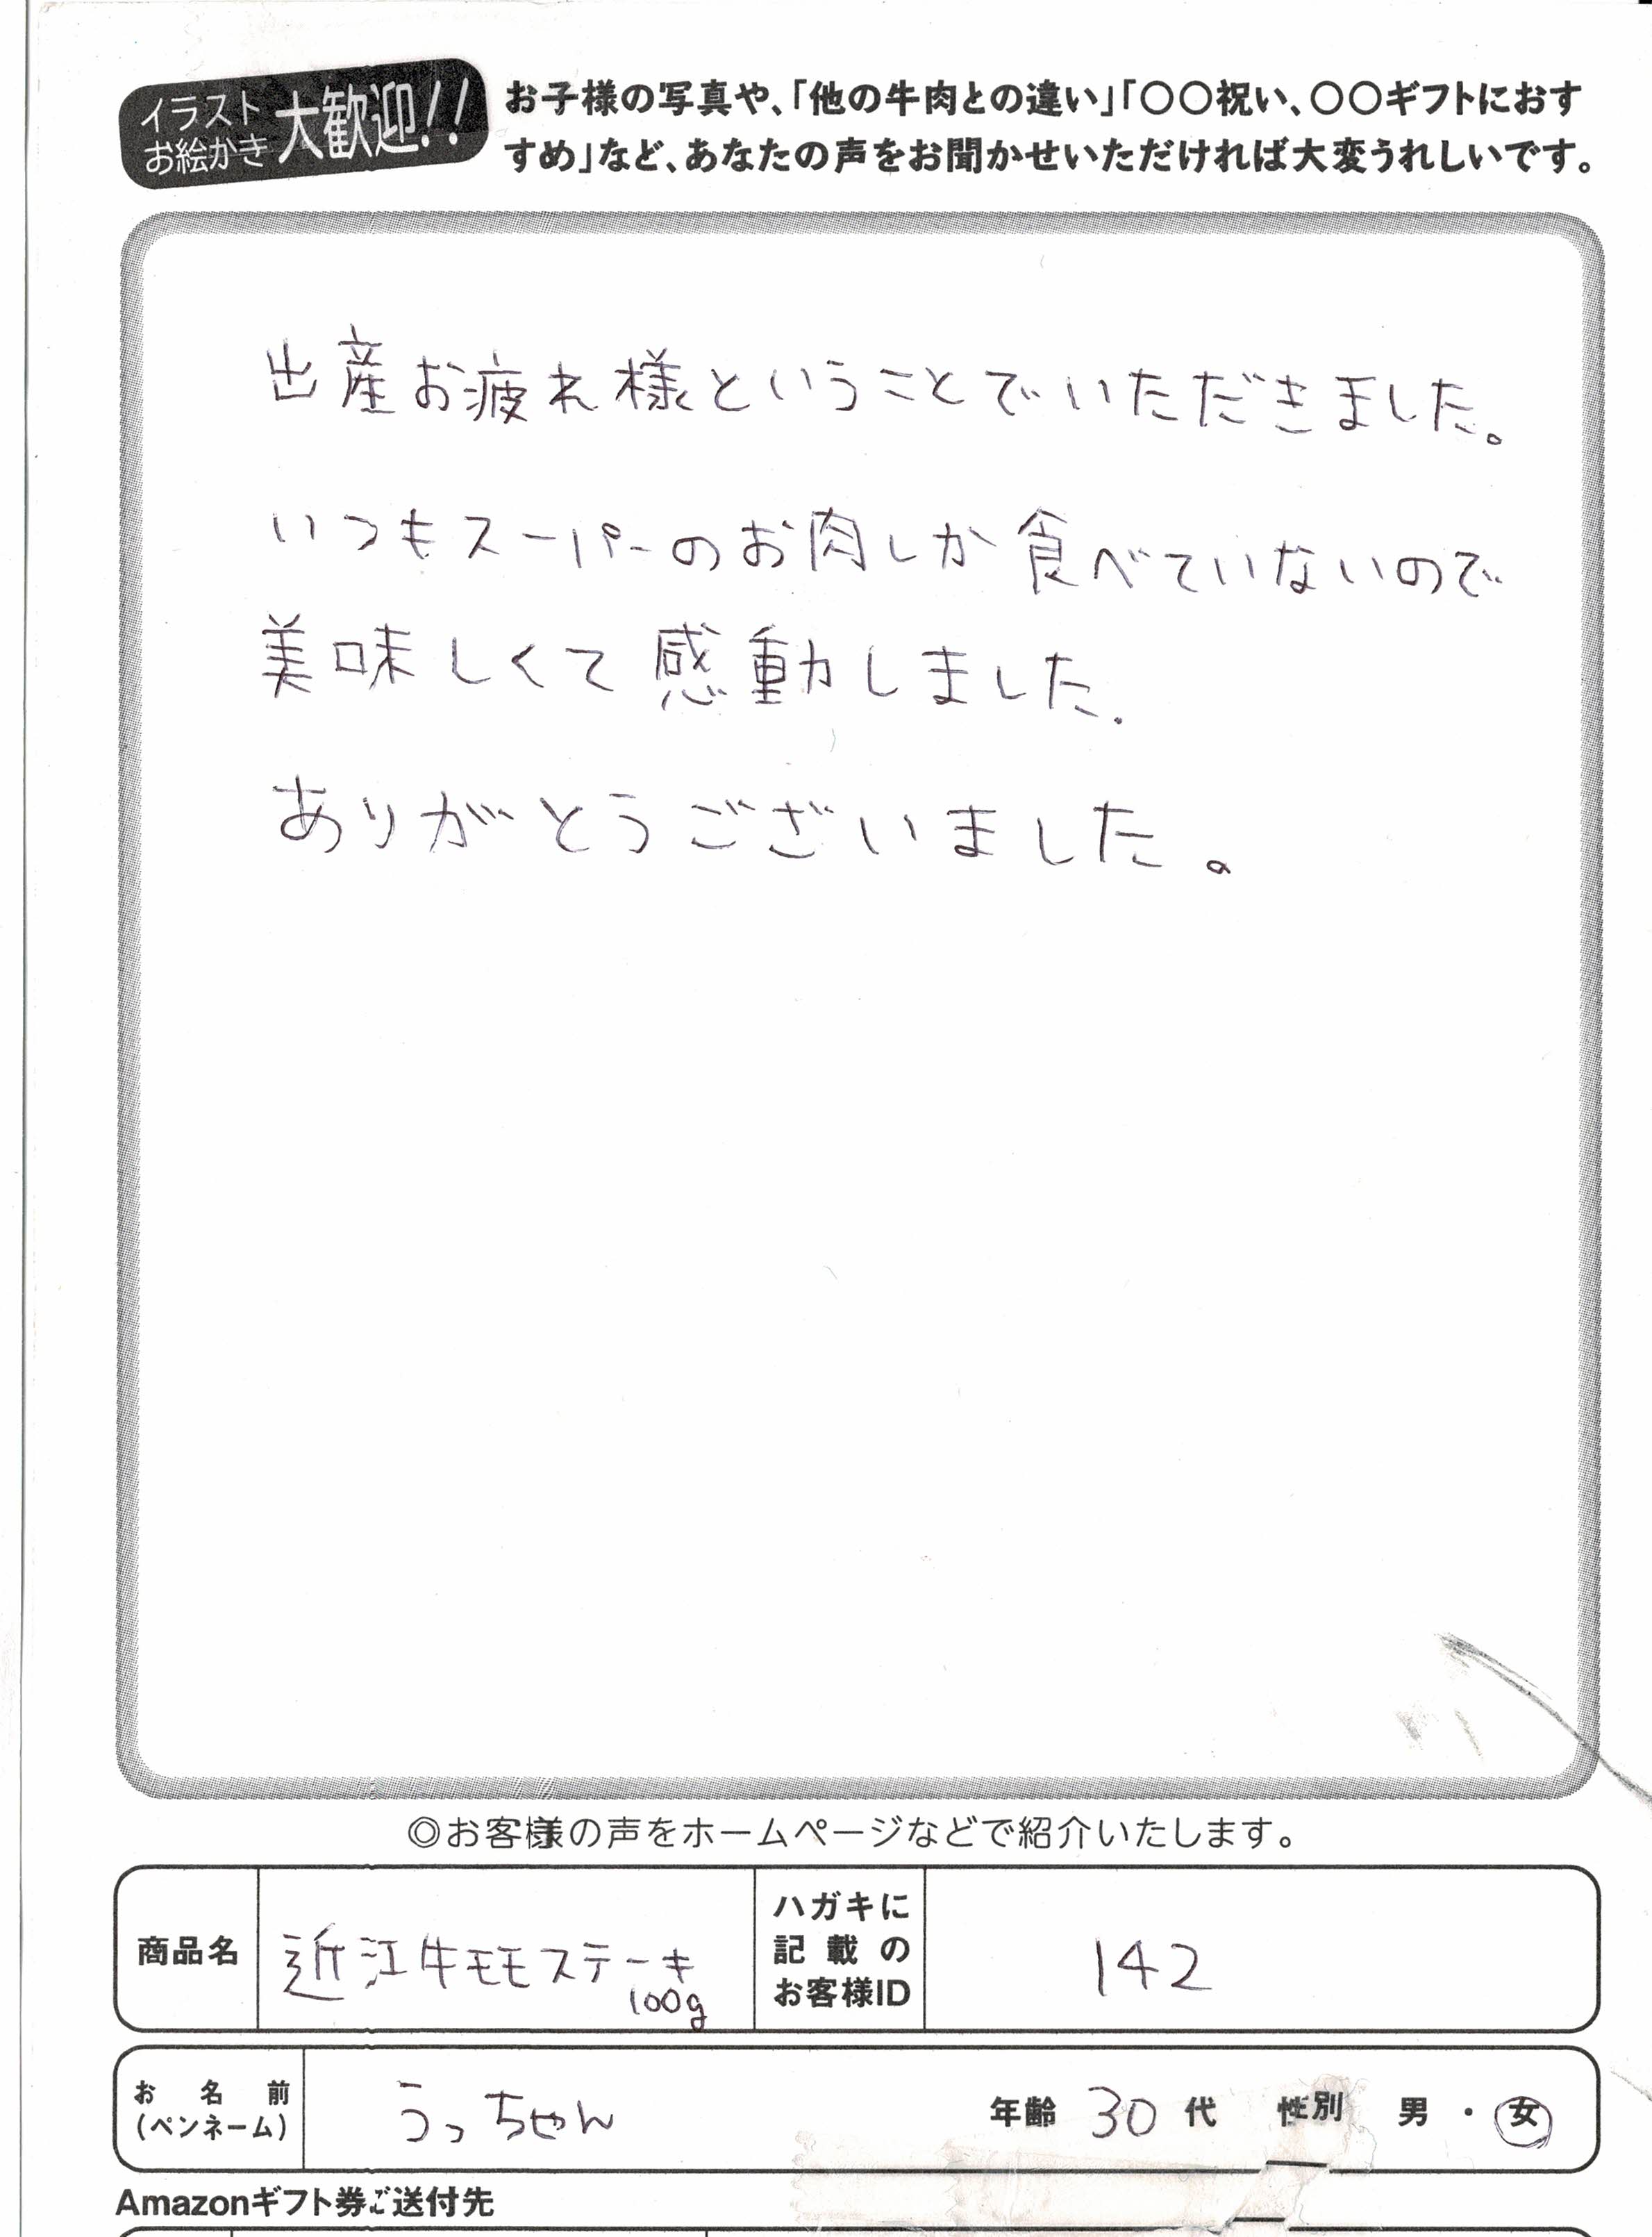 イラスト
お絵かき
大歓迎!!
お子様の写真や、「他の牛肉との違い」「〇〇祝い、〇〇ギフトにおす
すめ」など、あなたの声をお聞かせいただければ大変うれしいです。
出産お疲れ様ということでいただきました。
いつもスーパーのお肉しか食べていないので
美味しくて感動しました.
ありがとうございました。
◎お客様の声をホームページなどで紹介いたします。
商品名
近江牛モモステーキ
100g
ハガキに
記載の
お客様ID
142
お名前
(ペンネーム)
うっちゃん
年齢 30 代 性別 男・女
Amazonギフト券ご送付先